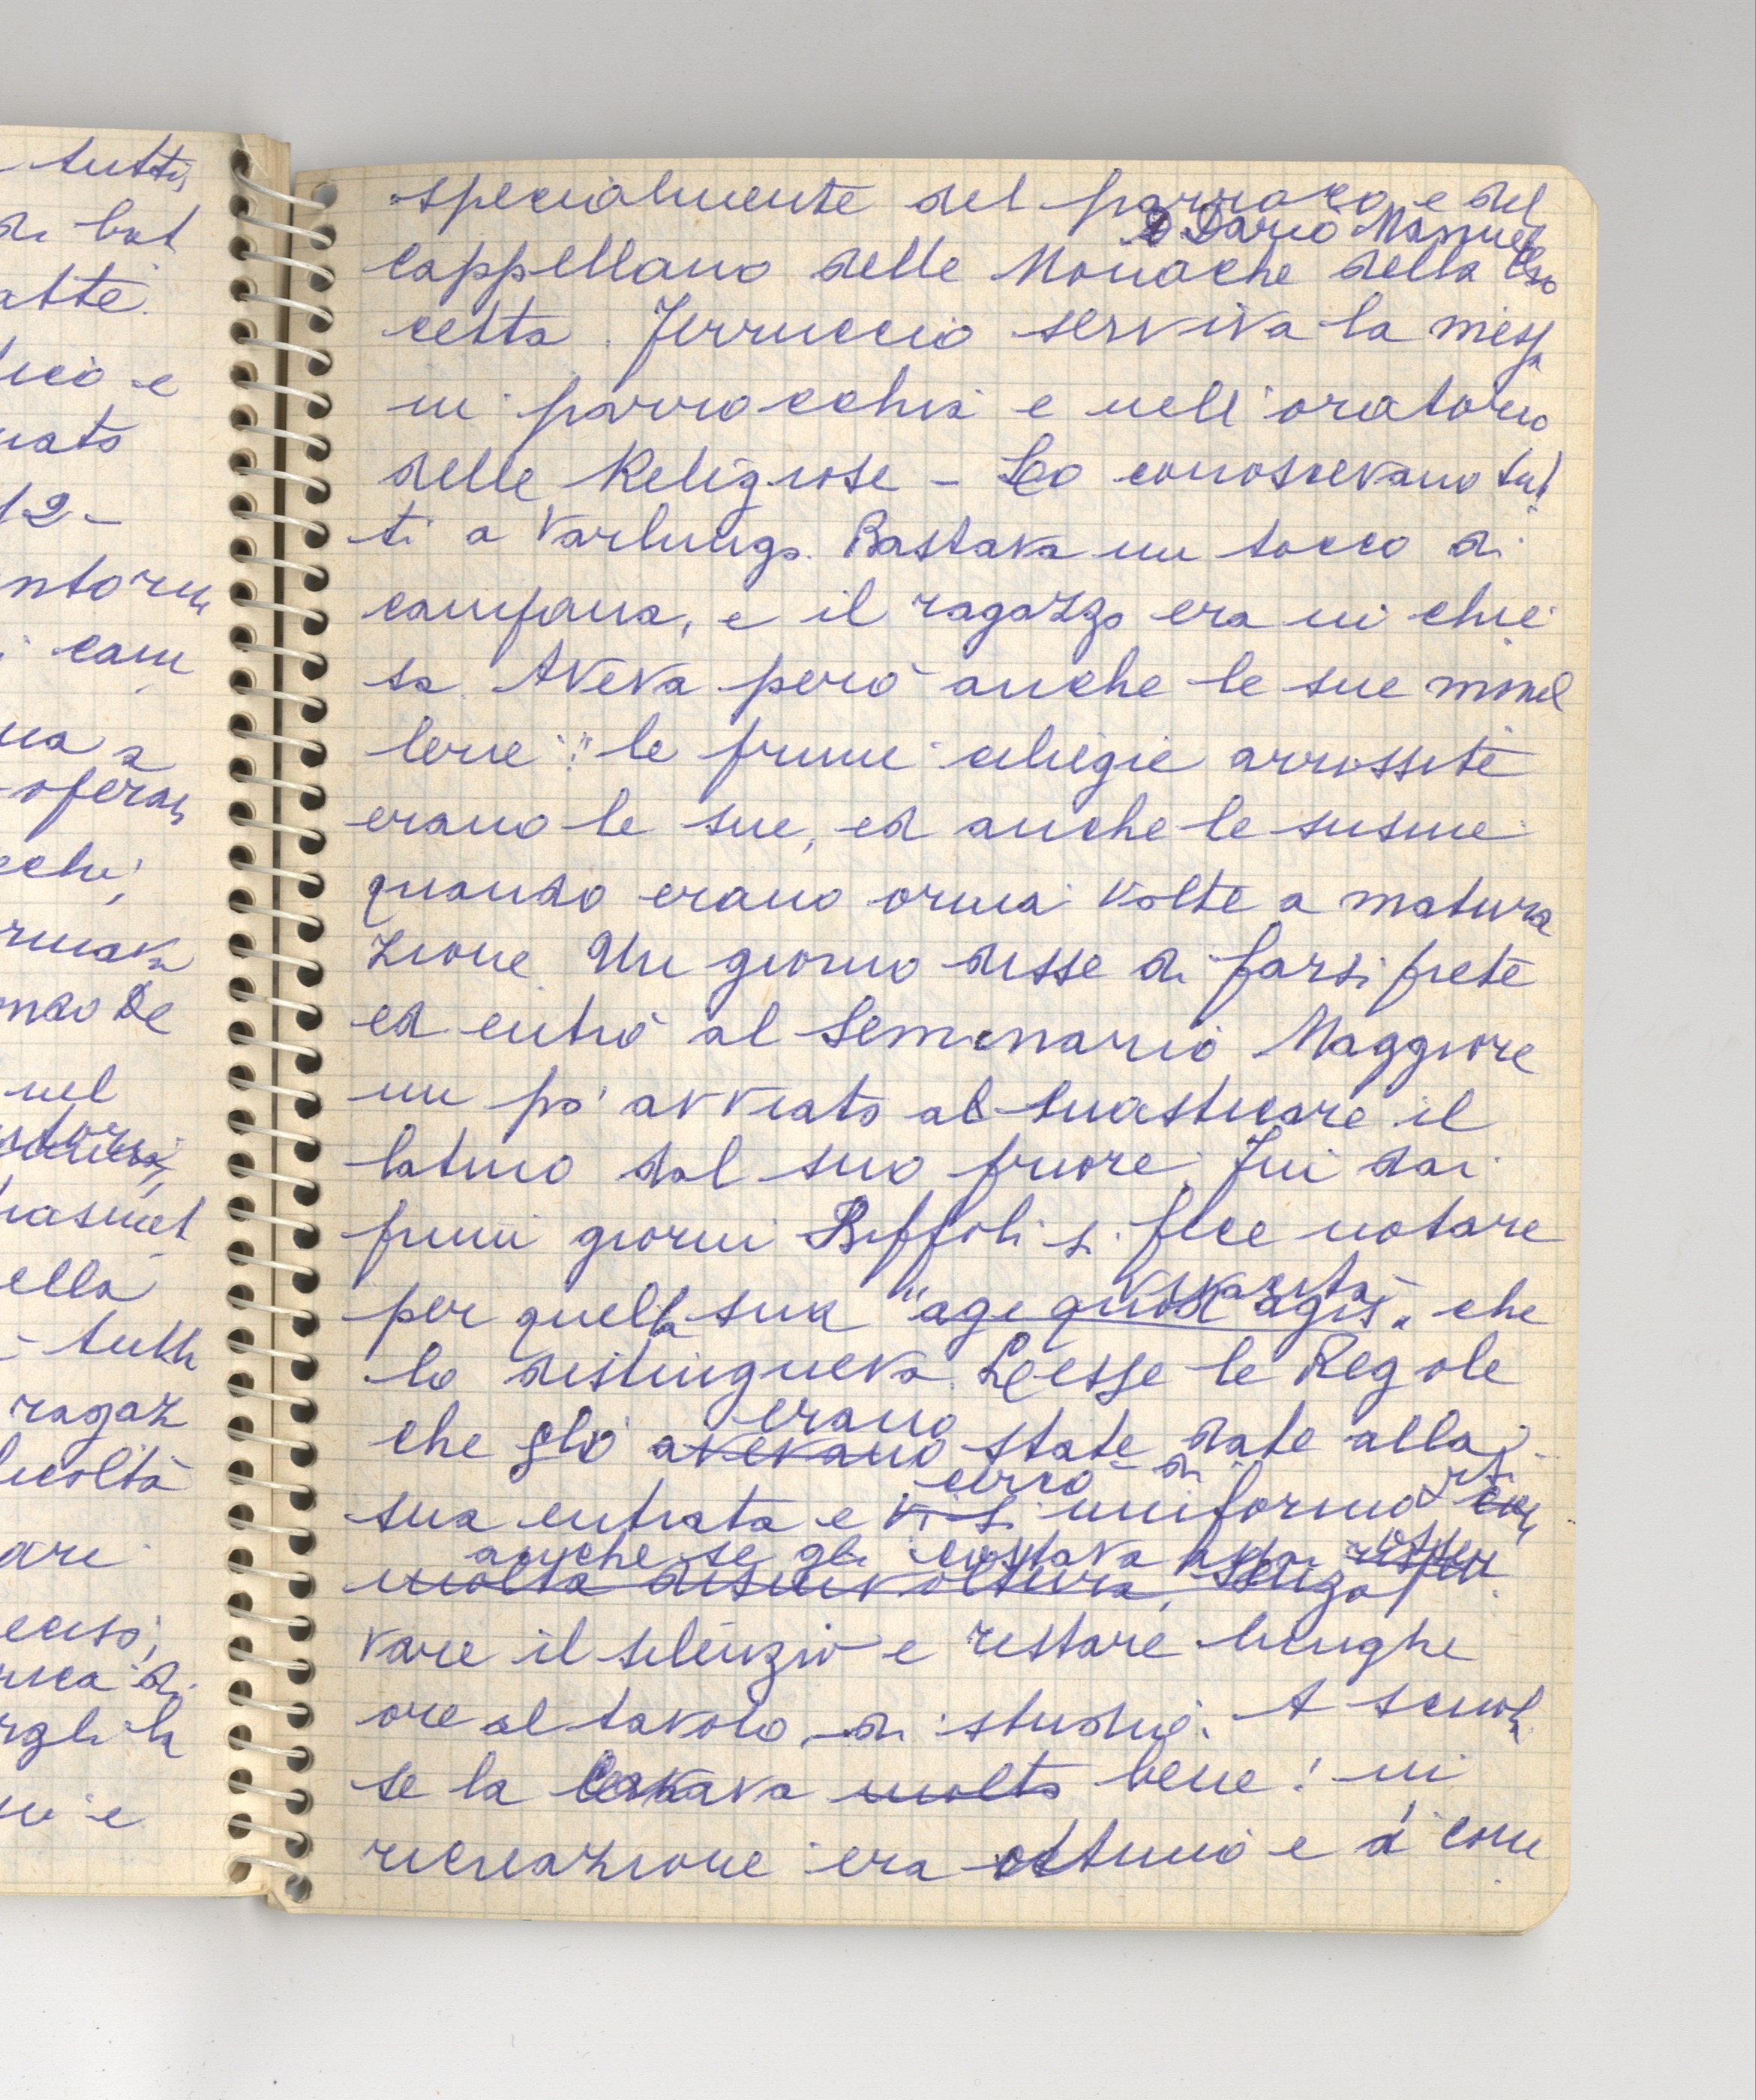 tutti,
di bot
atte.
ucio e
nato
12-
ntorn
i cam
na a
opera
cchi,
rmava
ndo De
nel
trasmet
ella
- tutti
ragaz
licoltà
ari
eciso,
rica di
rgli la
ni e
specialmente del parroco e del
D. Dario Manuel
cappellano delle Monache della Cro
cetta. Ferruccio serviva la messa
in parrocchia e nell'oratorio
delle Religiose - Lo conoscevano tut
ti a Varlungo. Bastava un tocco di
campana, e il ragazzo era in chie
sa. Aveva però anche le sue monel
lerie: le prime ciliegie arrossite
erano le sue, ed anche le susine
quando erano ormai volte a matura
zione. Un giorno disse di farsi prete
ed entrò al Seminario Maggiore
un po' avviato al masticare il
latino dal suo priore. Fin dai
primi giorni Biffoli si fece notare
vivacità
per quella sua "age quod agis" che
lo distingueva. Lesse le Regole
erano
che gli avevano state date alla
cercò di
sua entrata e vi si uniformò
anche se gli costava assai osser
molta disinvoltura, senza
vare il silenzio e restare lunghe
ore al tavolo di studio. A scuola
se la cavava molto bene! in
ricreazione era ottimo e di com